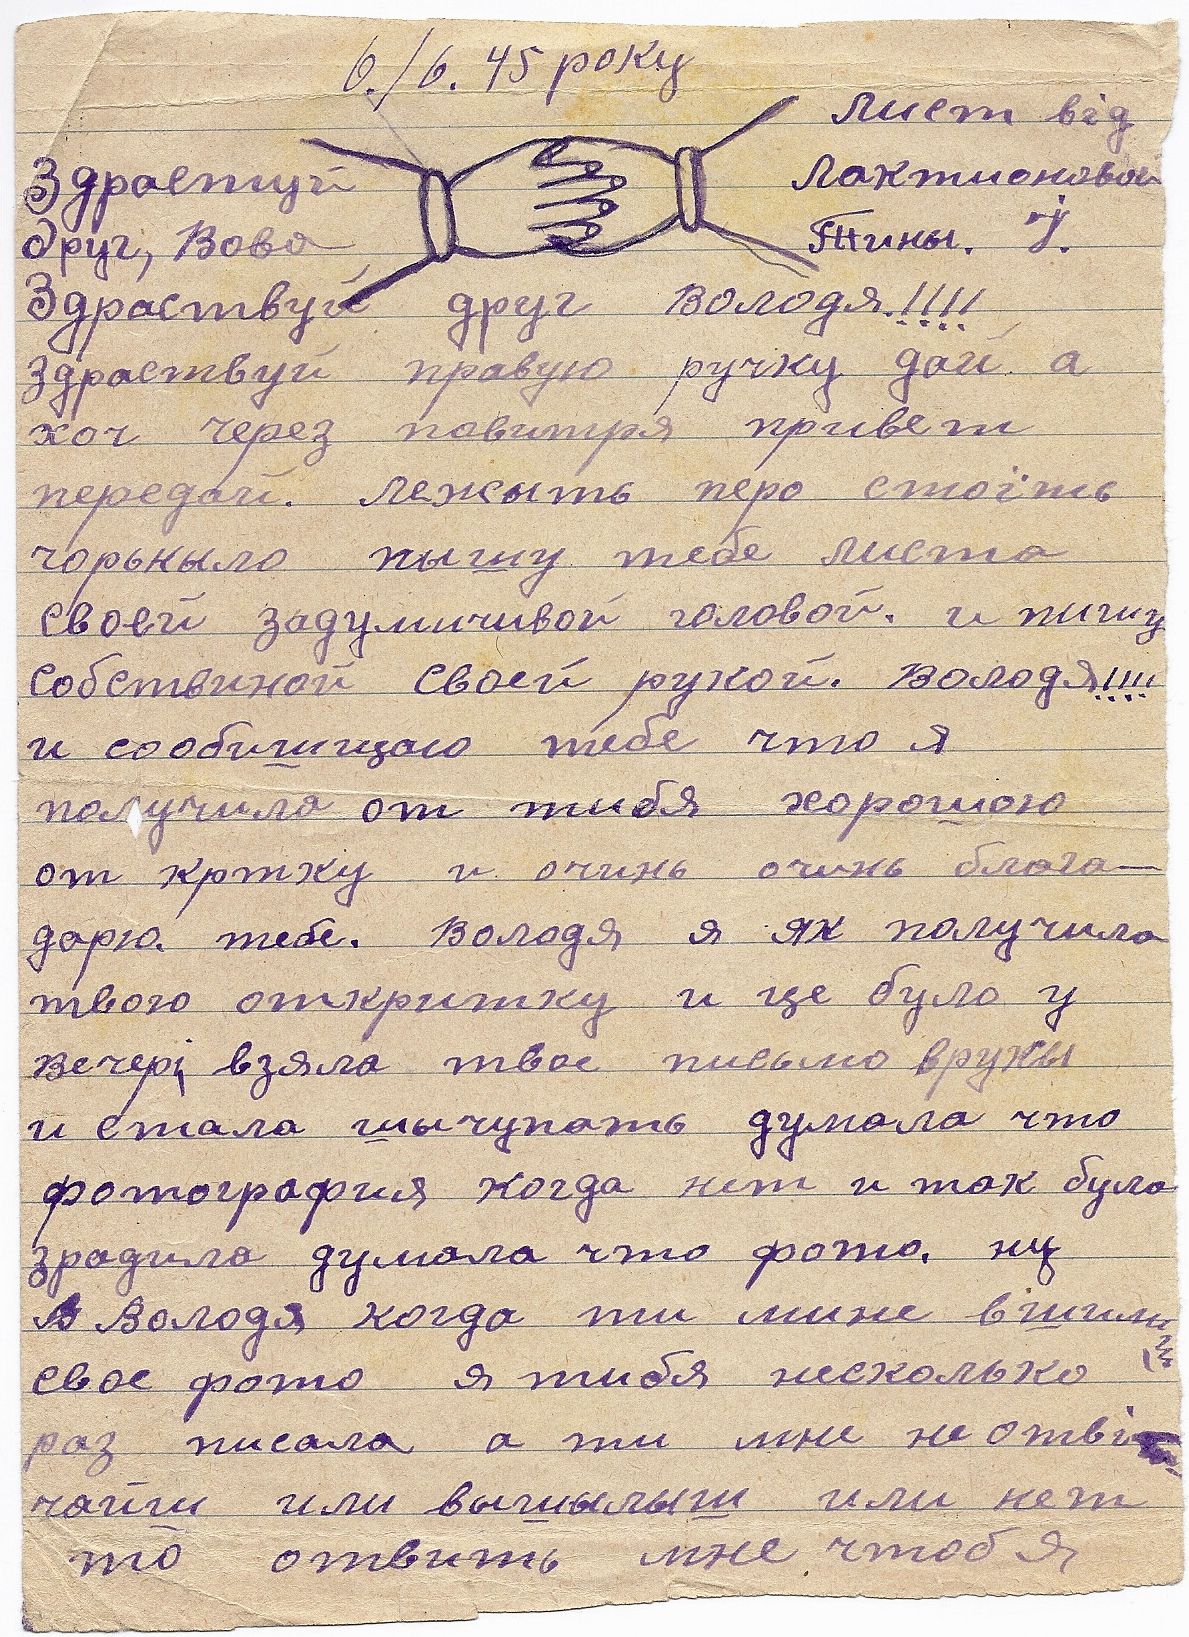 6./6. 45 року
Лист від
Здрастуй
Лактионовой
друг, Вова
Тины. І.
Здраствуй друг Володя.!!!!
здраствуй правую ручку дай а
хоч через повитря привет
передай. Лежыть перо стоїть
чорныло пышу тебе листа
своей задумичивой головой. и пишу
собствиной своей рукой. Володя!!!!
и сообишщаю тебе что я
получила от тибя хорошою
от кртку и очинь очинь блага-
дарю. тебе. Володя я як получила
твою откритку и це було у
вечері взяла твое письмо вружы
и стала шычупать думала что
фотография когда нет и так була
зрадила думала что фото. ну
Володя когда ти мине вишлиш
свое фото я тибя несколько
раз писала а ти мне не отві
чайш или вышылыш или нет
то отвить мне чтоб я